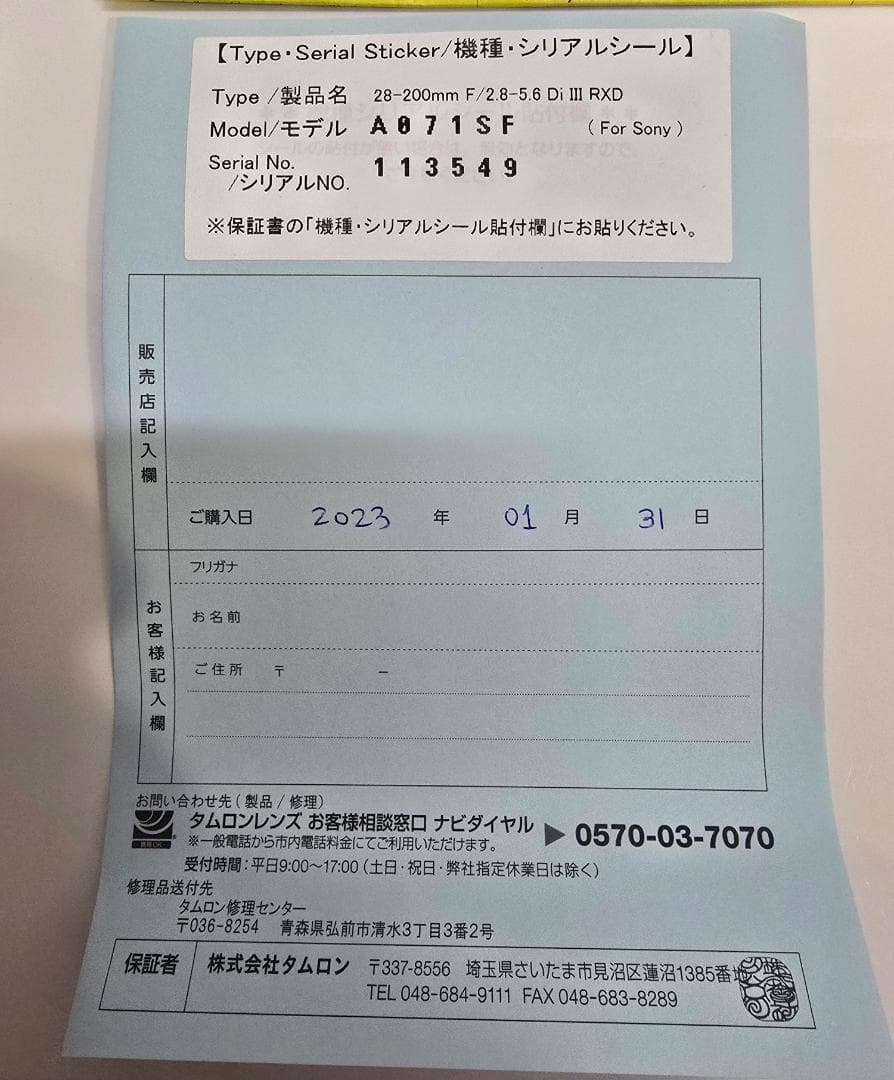 【Type・Serial Sticker/機種・シリアルシール】
Type /製品名 28-200mm F/2.8-5.6 Di III RXD
Model/モデル A071SF ( For Sony )
Serial No. /シリアルNO. 113549
※保証書の「機種・シリアルシール貼付欄」にお貼りください。
販売店記入欄
ご購入日 2023 年 01 月 31 日
お客様記入欄
フリガナ
お名前
ご住所 〒 －
お問い合わせ先（製品 / 修理）
タムロンレンズ お客様相談窓口 ナビダイヤル ▶ 0570-03-7070
※一般電話から市内電話料金にてご利用いただけます。
受付時間：平日9:00～17:00（土日・祝日・弊社指定休業日は除く）
修理品送付先
タムロン修理センター
〒036-8254 青森県弘前市清水3丁目3番2号
保証者 株式会社タムロン 〒337-8556 埼玉県さいたま市見沼区蓮沼1385番地
TEL 048-684-9111 FAX 048-683-8289